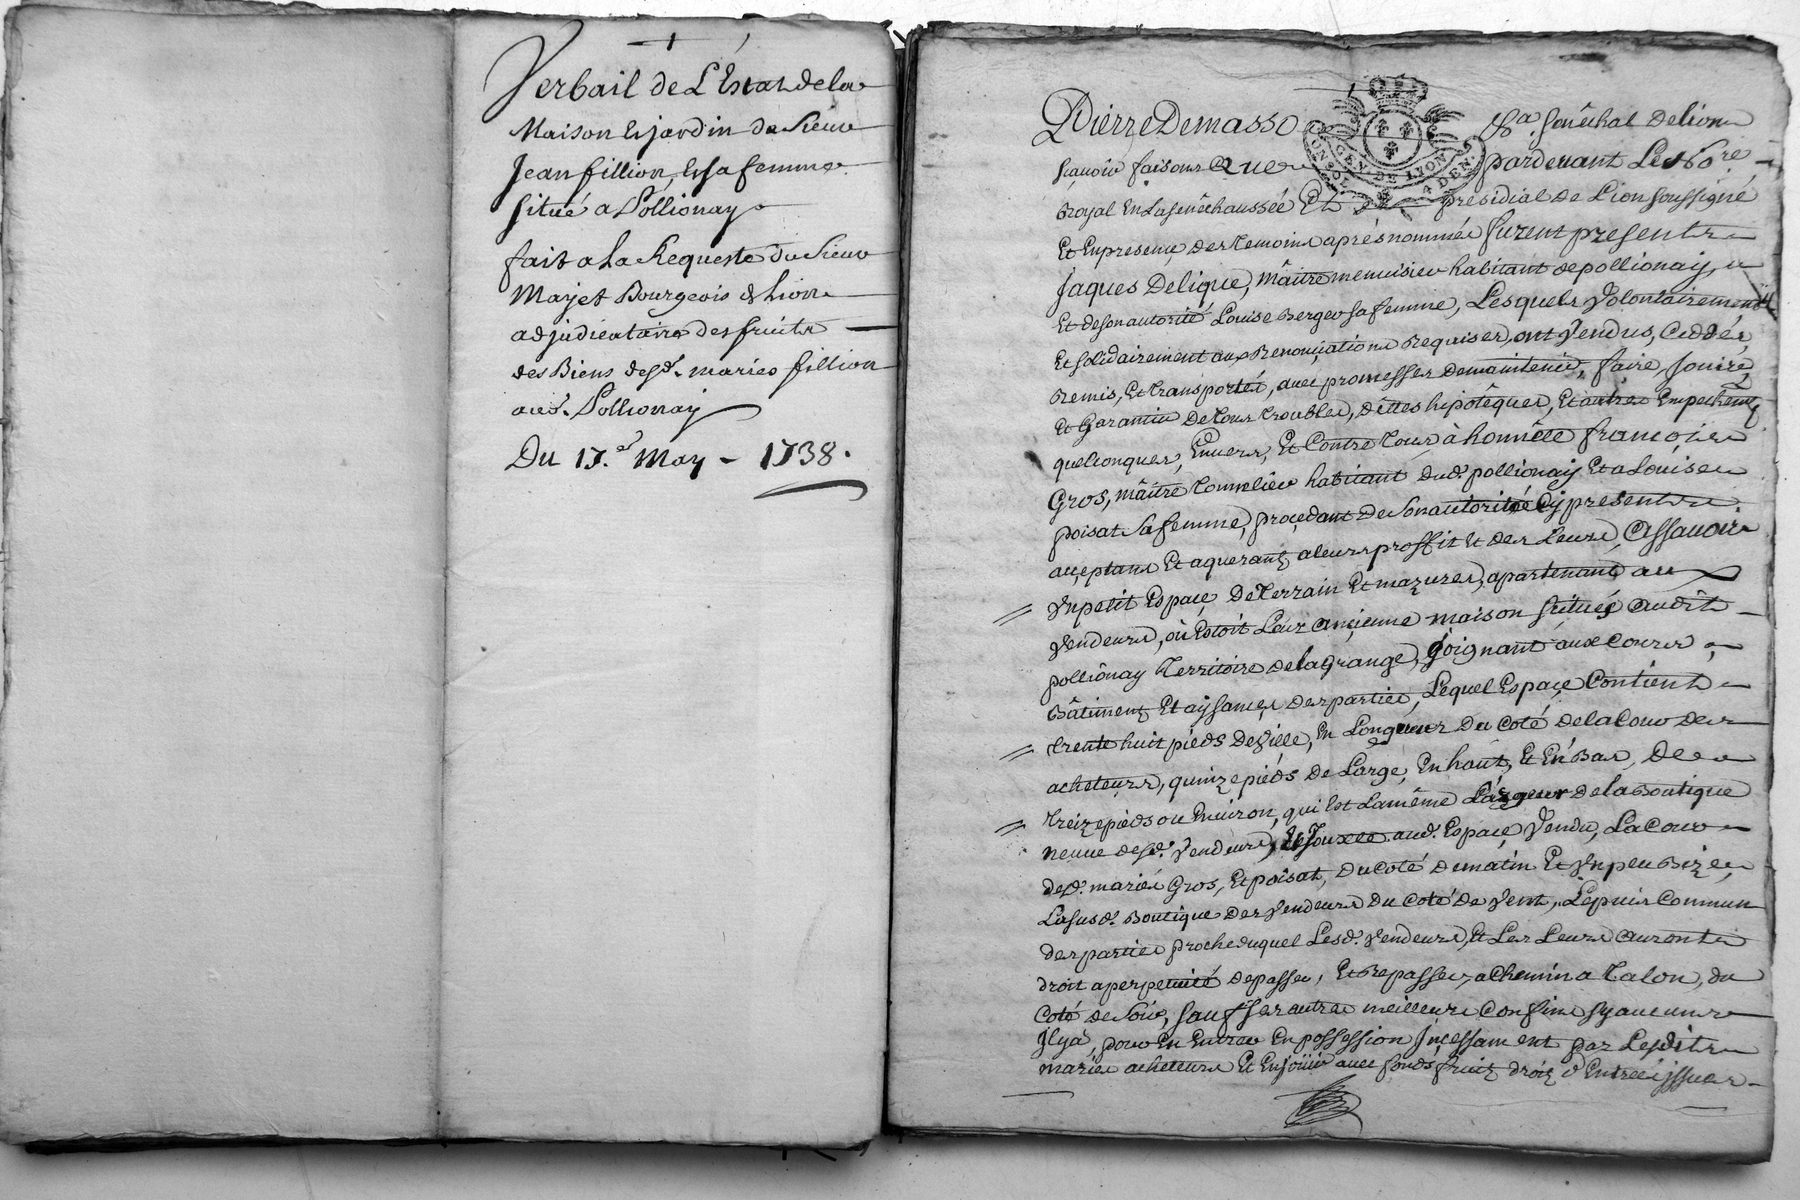 Verbail de L'Estat de la
Maison et jardin du Sieur
Jean fillion et sa femme
Situé a Pollionay
fait a la Requeste du Sieur
Mayet Bourgeois de Lion
adjudicataire des fruits
des Biens desd. mariés fillion
aud. Pollionay
Du 17.e May - 1738.
Pierre Demasso Sgr Senêchal de lion
sçavoir faisons Que pardevant Le Nore
Royal En La senêchaussée Et presidial de Lion soussigné
Et En presence des temoins aprés nommés furent presents
Jaques Delique, maître menuisier habitant de pollionay,
Et de son autorité Louise Berger sa femme, Lesquels Volontairement
Et solidairement aux Renonçiations Requises, ont Vendus, Ceddés,
Remis, Et transportés, avec promesses de maintenir, faire, Jouire,
Et Garantir De tous troubles, dêttes hipotêques, Et autres Empechemts
quelconques, Envers, Et Contre tous, à honnête françois
Gros, maître tonnelier habitant dud. pollionay Et a Loüise
poisat Sa femme, proçedant De Son autorité Cy presents
acçeptans Et aquerants a leurs proffit Et des Leurs, Assavoir
Un petit Espaçe De terrain Et mazures, apartenant aux
Vendeurs, où Estoit Leur ançienne maison Situés audit
pollionay territoire de la Grange, Joignant aux Cours,
Bâtiments Et aysances des parties, Lequel Espaçe Contient
trente huit pieds De Ville, En Longueur Du Coté de la Cour des
acheteurs, quinze pieds De Large, En haut, Et En Bas, De
treize pieds ou Environ, qui Est La même Largeur de la Boutique
neuve desd. Vendeurs, Et Jouxte aud. Espaçe Vendu, La Cour
desd. mariés Gros, Et poisat, Du Coté De matin Et Un peu Bize,
La susd. Boutique Des Vendeurs Du Coté De Vent, Le puis Commun
des parties proche duquel Lesd. Vendeurs, Et Les Leurs auront
droit a perpetuité de passer, Et Repasser, a Chemin a talon, du
Coté de Soir, Sauf ses autres meilleurs Confins sy aucuns
Il y a, pour En Entrer En possession Inçessament par Lesdits
mariés acheteurs Et En Joüir avec fonds fruits droits d'Entrée issues
GEN. DE LION
4 DEN.